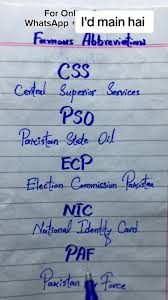 For Onl
WhatsApp +
I'd main hai
Famous Abbreviation
CSS
Central Superior Services
PSO
Pakistan State Oil
ECP
Election Commission Pakistan
NIC
National Identity Card
PAF
Pakistan Force